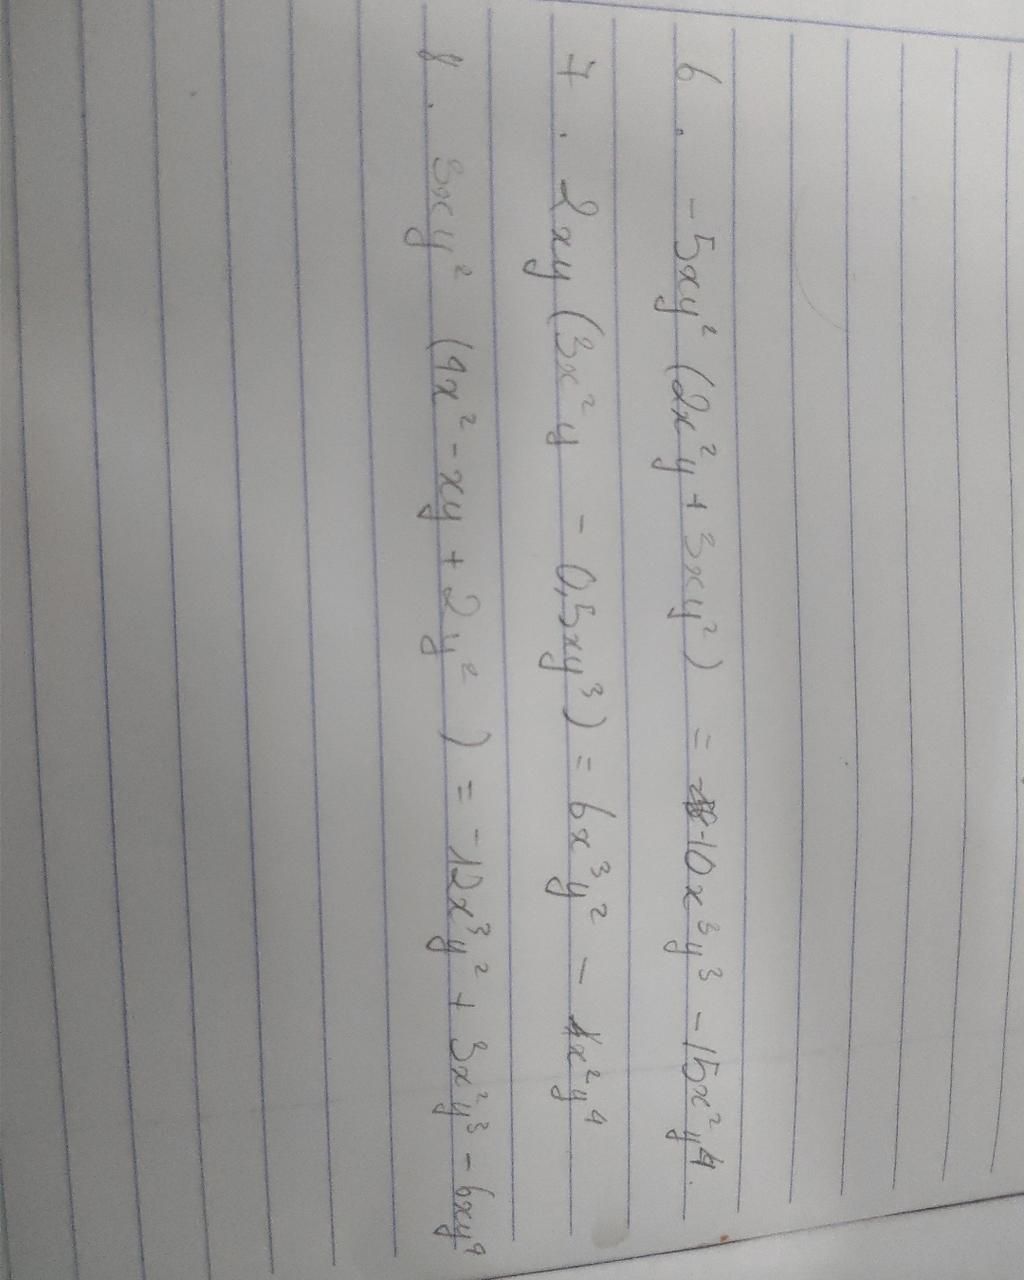 6. -5xy² (2x²y + 3xy²) = -10x³y³ - 15x²y⁴.
7. 2xy (3x²y - 0,5xy³) = 6x³y² - 1x²y⁴
8. 3xy² (4x² - xy + 2y²) = -12x³y² + 3x²y³ - 6xy⁴